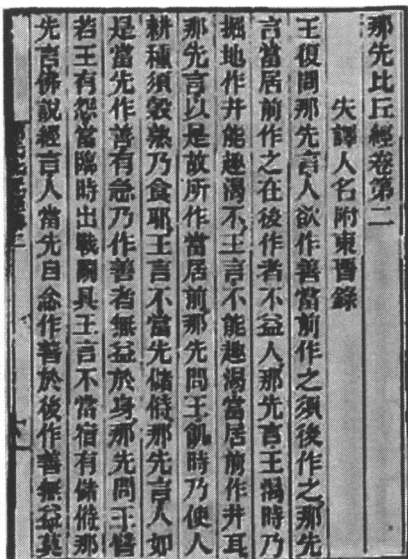 那先比丘經卷第二
失譯人名附東晉錄
王復問那先言人欲作善當前作之須後作之那先
言當居前作之在後作者不益人那先言王渴時乃
掘地作井能趣渴不王言不能趣渴當居前作井耳
那先言以是故所作當居前那先問王飢時乃使人
耕種須穀熟乃食耶王言不當先儲偫那先言人如
是當先作善有急乃作善者無益於身那先問王譬
若王有怨當臨時出戰鬭具王言不當宿有儲偫那
先言佛說經言人當先自念作善於後作善無益莫